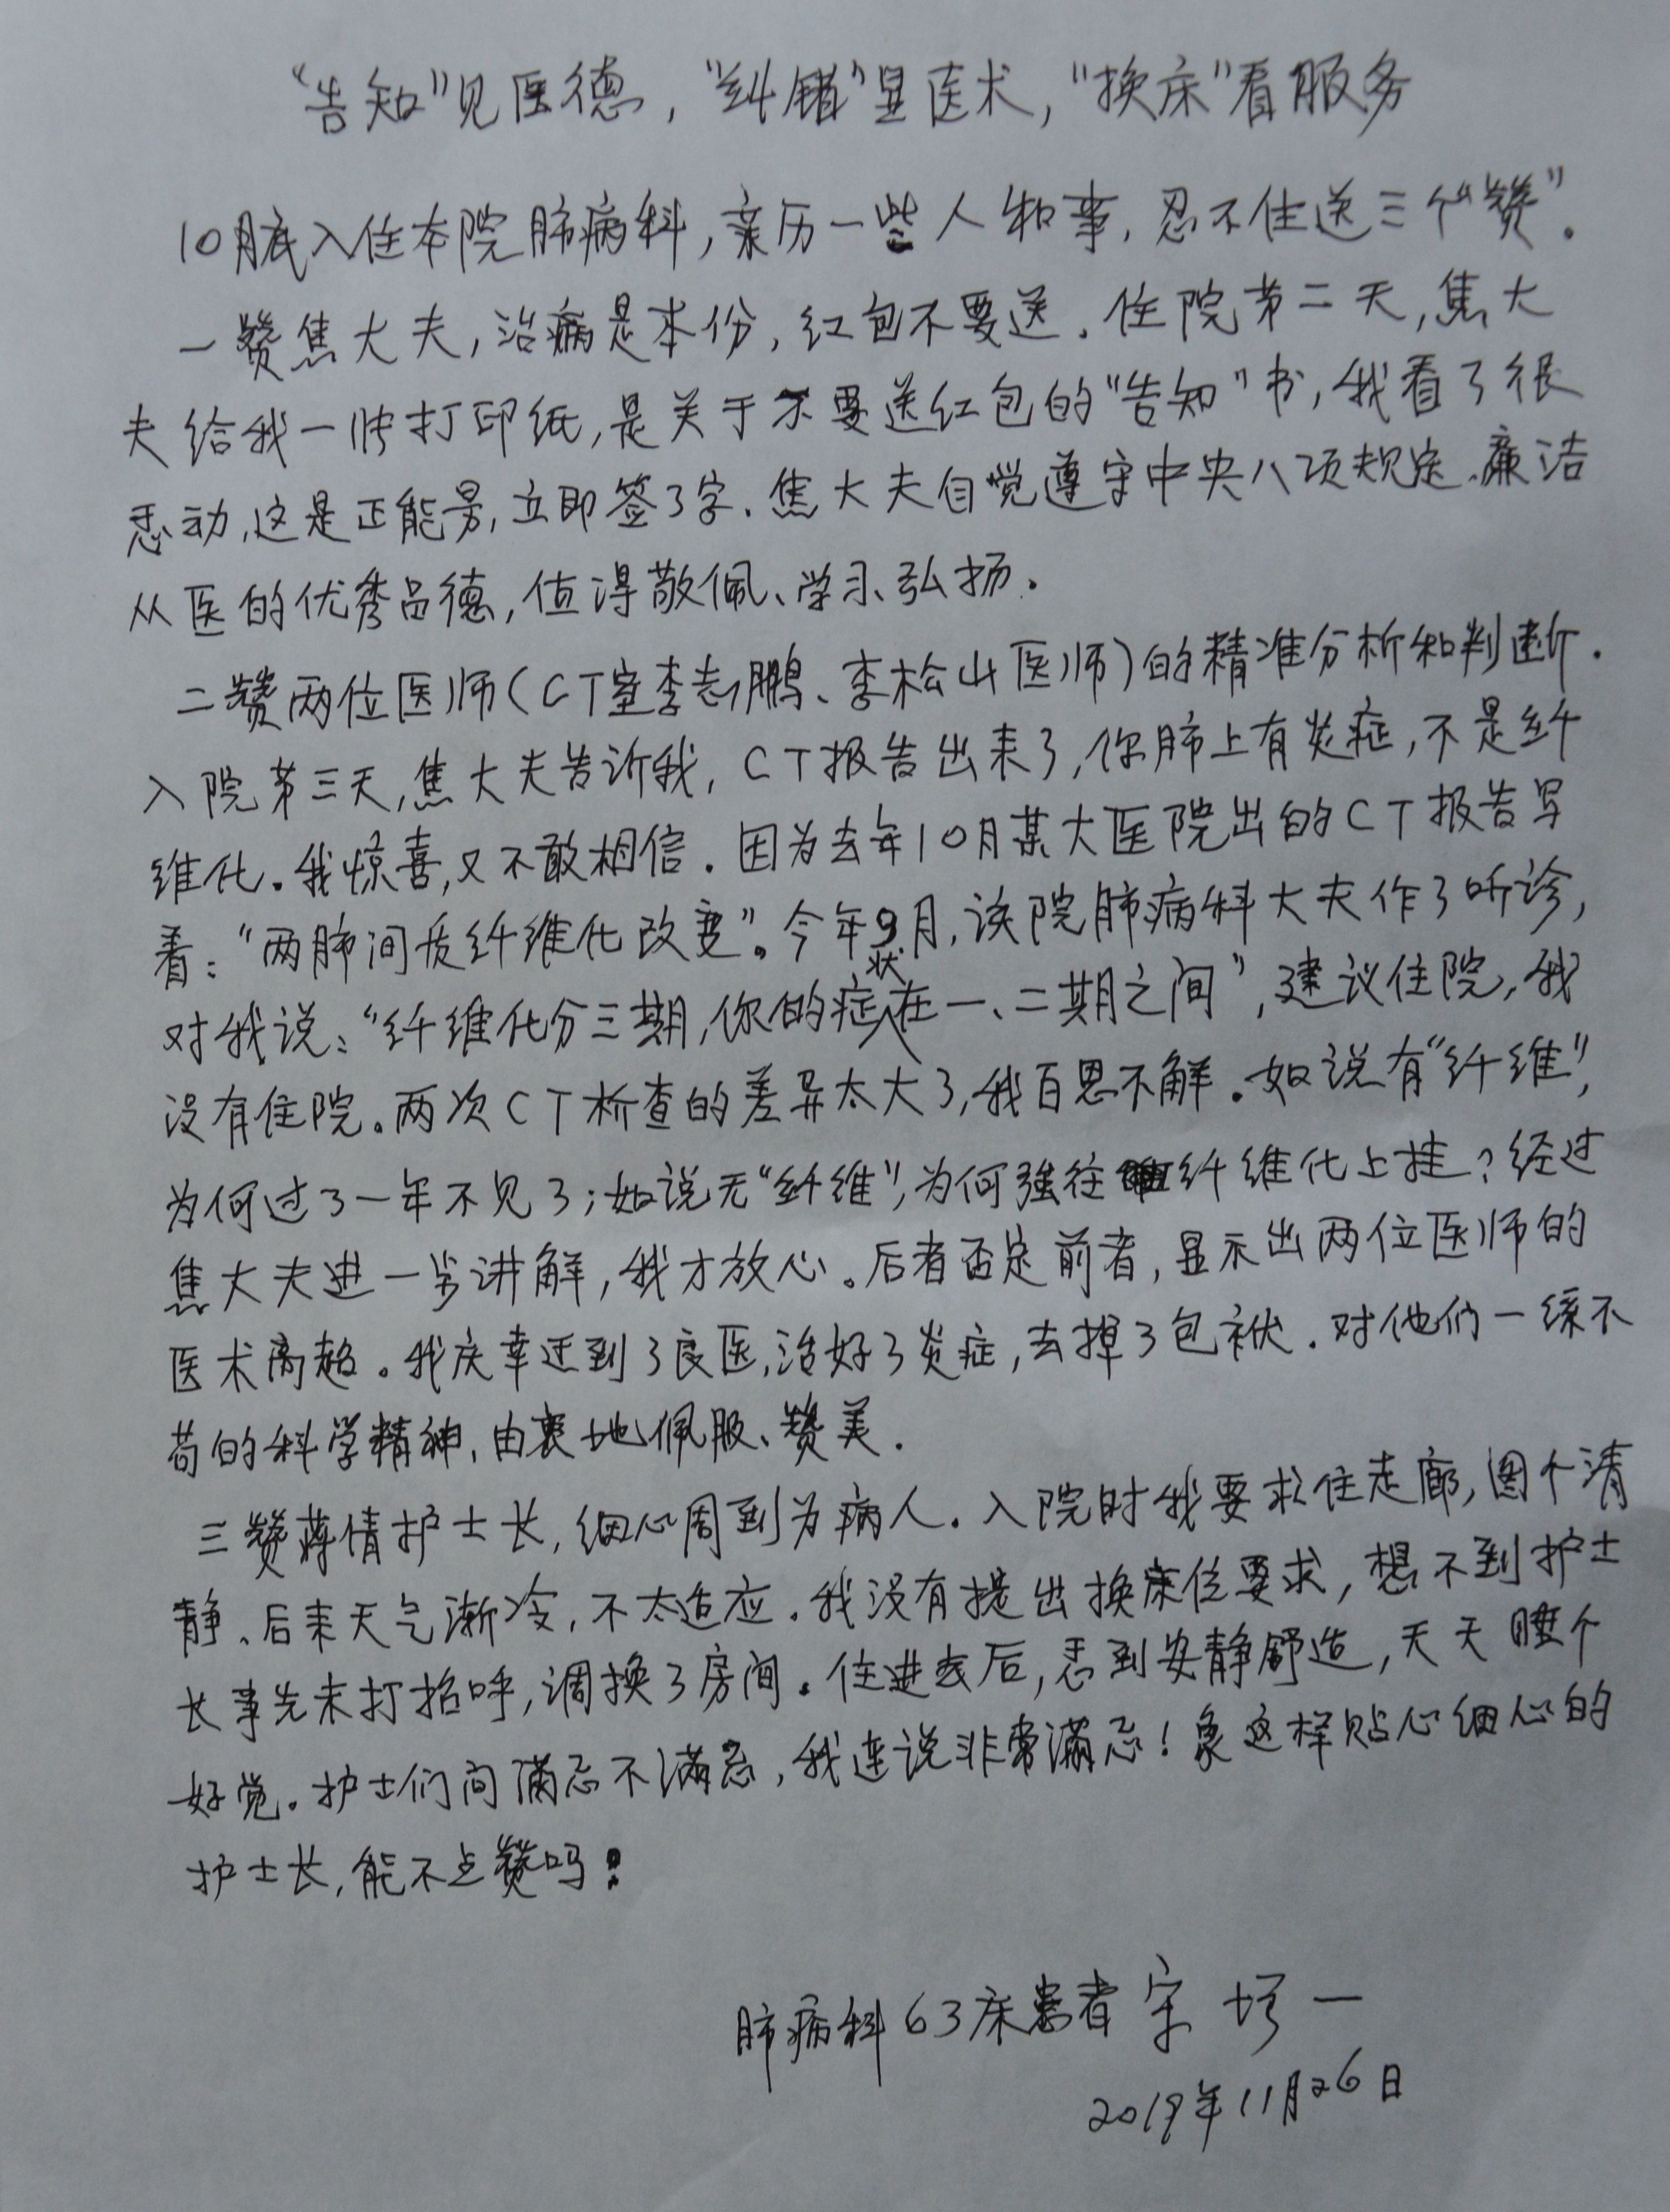 “告知”见医德，“纠错”显医术，“换床”看服务
10月底入住本院肺病科，亲历一些人和事，忍不住送三个“赞”。
一赞焦大夫，治病是本份，红包不要送。住院第二天，焦大
夫给我一张打印纸，是关于不要送红包的“告知”书，我看了很
感动，这是正能量，立即签了字。焦大夫自觉遵守中央八项规定、廉洁
从医的优秀品德，值得敬佩、学习、弘扬。
二赞两位医师（CT室李志鹏、李松山医师）的精准分析和判断。
入院第三天，焦大夫告诉我，CT报告出来了，你肺上有炎症，不是纤
维化。我惊喜，又不敢相信。因为去年10月某大医院出的CT报告写
着：“两肺间质纤维化改变”。今年9月，该院肺病科大夫作了听诊，
对我说：“纤维化分三期，你的症状在一、二期之间”，建议住院，我
没有住院。两次CT检查的差异太大了，我百思不解。如说有“纤维”，
为何过了一年不见了；如说无“纤维”，为何强往纤维化上挂？经过
焦大夫进一步讲解，我才放心。后者否定前者，显示出两位医师的
医术高超。我庆幸遇到了良医，治好了炎症，去掉了包袱。对他们一丝不
苟的科学精神，由衷地佩服、赞美。
三赞蒋倩护士长，细心周到为病人。入院时我要求住走廊，图个清
静、后来天气渐冷，不太适应。我没有提出换床位要求，想不到护士
长事先未打招呼，调换了房间。住进去后，感到安静舒适，天天睡个
好觉。护士们问满意不满意，我连说非常满意！象这样贴心细心的
护士长，能不点赞吗！
肺病科63床患者 宋 一
2019年11月26日